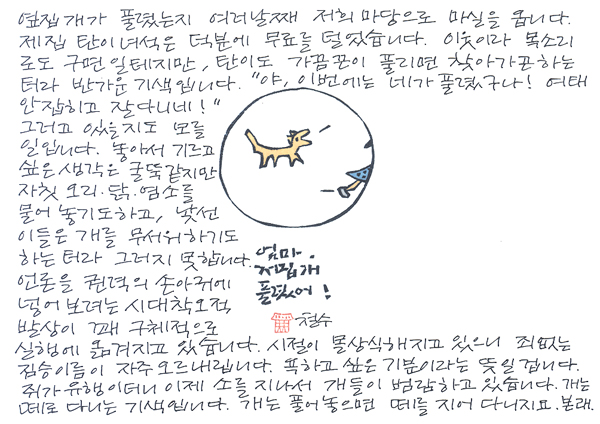 옆집 개가 풀렸는지 여러날째 저희 마당으로 마실을 옵니다.
제집 탄이녀석은 덕분에 무료를 덜었습니다. 이웃이라 목소리
로도 구면일테지만, 탄이도 가끔 끈이 풀리면 찾아가곤하는
터라 반가운 기색입니다. "야, 이번에는 네가 풀렸구나! 여태
안잡히고 잘다니네!"
그러고 있을지도 모를
일입니다. 놓아서 기르고
싶은 생각은 굴뚝같지만
자칫 오리.닭.염소를
물어 놓기도하고, 낯선
이들은 개를 무서워하기도
하는터라 그러지 못합니다.
언론을 권력의 손아귀에
넣어 보려는 시대착오적
발상이 꽤 구체적으로
실행에 옮겨지고 있습니다. 시절이 몰상식해지고 있으니 죄없는
짐승이름이 자주 오르내립니다. 욕하고 싶은 기분이라는 뜻일 겁니다.
쥐가 유행이더니 이제 소를 지나서 개들이 범람하고 있습니다. 개는
떼로 다니는 기색입니다. 개는 풀어놓으면 떼를 지어 다니지요. 본래.
엄마.
저집개
풀렸어!
철수